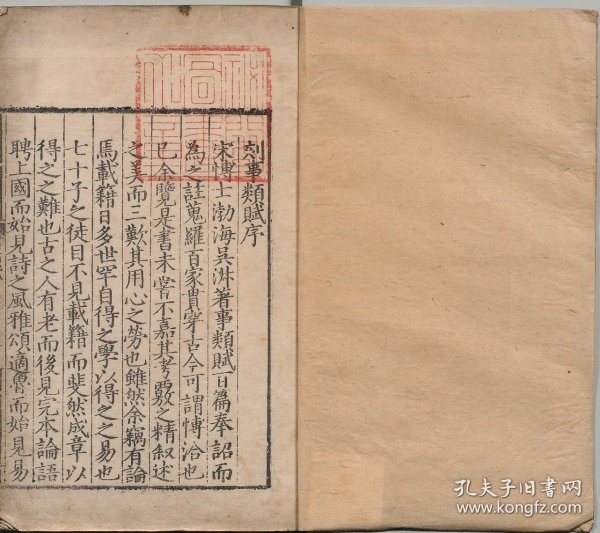 刻事類賦序
宋博士渤海吳淑著事類賦百篇奉詔而
為之註蒐羅百家貫穿古今可謂博洽也
已余覽是書未嘗不嘉其考覈之精叙述
之美而三歎其用心之勞也雖然余竊有論
焉載籍日多世罕自得之學以得之之易也
七十子之徒目不見載籍而斐然成章以
得之之難也古之人有老而後見完本論語
聘上國而始見詩之風雅頌適魯而始見易
孔夫子旧书网
www.kongfz.com